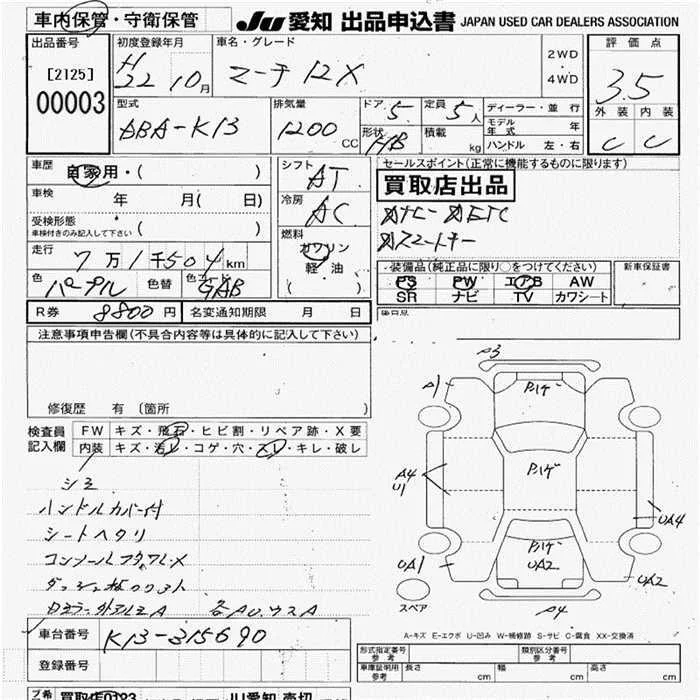 車内保管・守衛保管
JU 愛知 出品申込書 JAPAN USED CAR DEALERS ASSOCIATION
出品番号
[2125]
00003
初度登録年月
H 22 10月
車名・グレード
マーチ 12X
2WD
・
4WD
評価点
3.5
外装 内装
C C
型式
DBA-K13
排気量
1200 CC
ドア 5
形状 HB
定員 5人
積載 kg
ディーラー・並行
モデル年式 年
ハンドル 左・右
車歴 自家用・( )
車検 年 月( 日)
受検形態
車検付きのみ記入して下さい ( )
走行 7万1千504km
色 パープル
色替
色コード GAB
シフト AT
冷房 AC
燃料
ガソリン
軽・油
( )
セールスポイント(正常に機能するものに限ります)
買取店出品
装備品(純正品に限り○をつけてください)
PS PW エアB AW
SR ナビ TV カワシート
新車保証書
後日品
R券 8800円
名変通知期限 月 日
注意事項申告欄(不具合内容等は具体的に記入して下さい)
修復歴 有 〔箇所 〕
検査員記入欄
FW キズ・飛石・ヒビ割・リペア跡・X要
内装 キズ・汚レ・コゲ・穴・スレ・キレ・破レ
シミ
ハンドルカバー付
シートヘタリ
A3
A1
Pハゲ
Pハゲ
Pハゲ
UA2
A4
U1
UA4
UA1
UA2
A4
スペア
A-キズ E-エクボ U-凹み W-補修跡 S-サビ C-腐食 XX-交換済
車台番号 K13-315690
登録番号
形式指定番号 参考
類別区分番号 参考
車庫証明用 参考 長さ 幅 高さ
買取店0123
JU愛知 売切